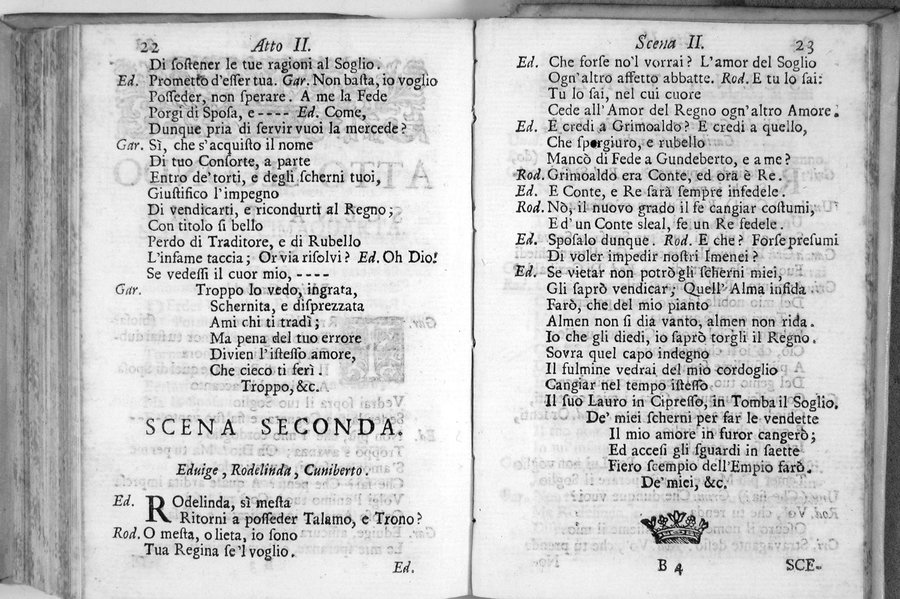 22 Atto II.
Di ſoſtener le tue ragioni al Soglio.
Ed. Prometto d'eſſer tua. Gar. Non baſta, io voglio
Poſſeder, non ſperare. A me la Fede
Porgi di Spoſa, e ---- Ed. Come,
Dunque pria di ſervir vuoi la mercede?
Gar. Sì, che s'acquiſto il nome
Di tuo Conſorte, a parte
Entro de' torti, e degli ſcherni tuoi,
Giuſtifico l'impegno
Di vendicarti, e ricondurti al Regno;
Con titolo ſi bello
Perdo di Traditore, e di Rubello
L'infame taccia; Or via riſolvi? Ed. Oh Dio!
Se vedeſſi il cuor mio, ----
Gar. Troppo lo vedo, ingrata,
Schernita, e diſprezzata
Ami chi ti tradì;
Ma pena del tuo errore
Divien l'iſteſſo amore,
Che cieco ti ferì.
Troppo, &c.
SCENA SECONDA.
Eduige, Rodelinda, Cuniberto.
Ed. Rodelinda, sì meſta
Ritorni a poſſeder Talamo, e Trono?
Rod. O meſta, o lieta, io ſono
Tua Regina ſe'l voglio.
Ed.
Scena II. 23
Ed. Che forſe no'l vorrai? L'amor del Soglio
Ogn'altro affetto abbatte. Rod. E tu lo ſai:
Tu lo ſai, nel cui cuore
Cede all'Amor del Regno ogn'altro Amore.
Ed. E credi a Grimoaldo? E credi a quello,
Che ſpergiuro, e rubello
Mancò di Fede a Gundeberto, e a me?
Rod. Grimoaldo era Conte, ed ora è Re.
Ed. E Conte, e Re ſarà ſempre infedele.
Rod. Nò, il nuovo grado il fe cangiar coſtumi,
E d'un Conte sleal, fe un Re fedele.
Ed. Spoſalo dunque. Rod. E che? Forſe preſumi
Di voler impedir noſtri Imenei?
Ed. Se vietar non potrò gli ſcherni miei,
Gli ſaprò vendicar; Quell' Alma infida
Farò, che del mio pianto
Almen non ſi dia vanto, almen non rida.
Io che gli diedi, io ſaprò torgli il Regno.
Sovra quel capo indegno
Il fulmine vedrai del mio cordoglio
Cangiar nel tempo iſteſſo
Il ſuo Lauro in Cipreſſo, in Tomba il Soglio.
De' miei ſcherni per far le vendette
Il mio amore in furor cangerò;
Ed acceſi gli ſguardi in ſaette
Fiero ſcempio dell'Empio farò.
De' miei, &c.
B 4 SCE-